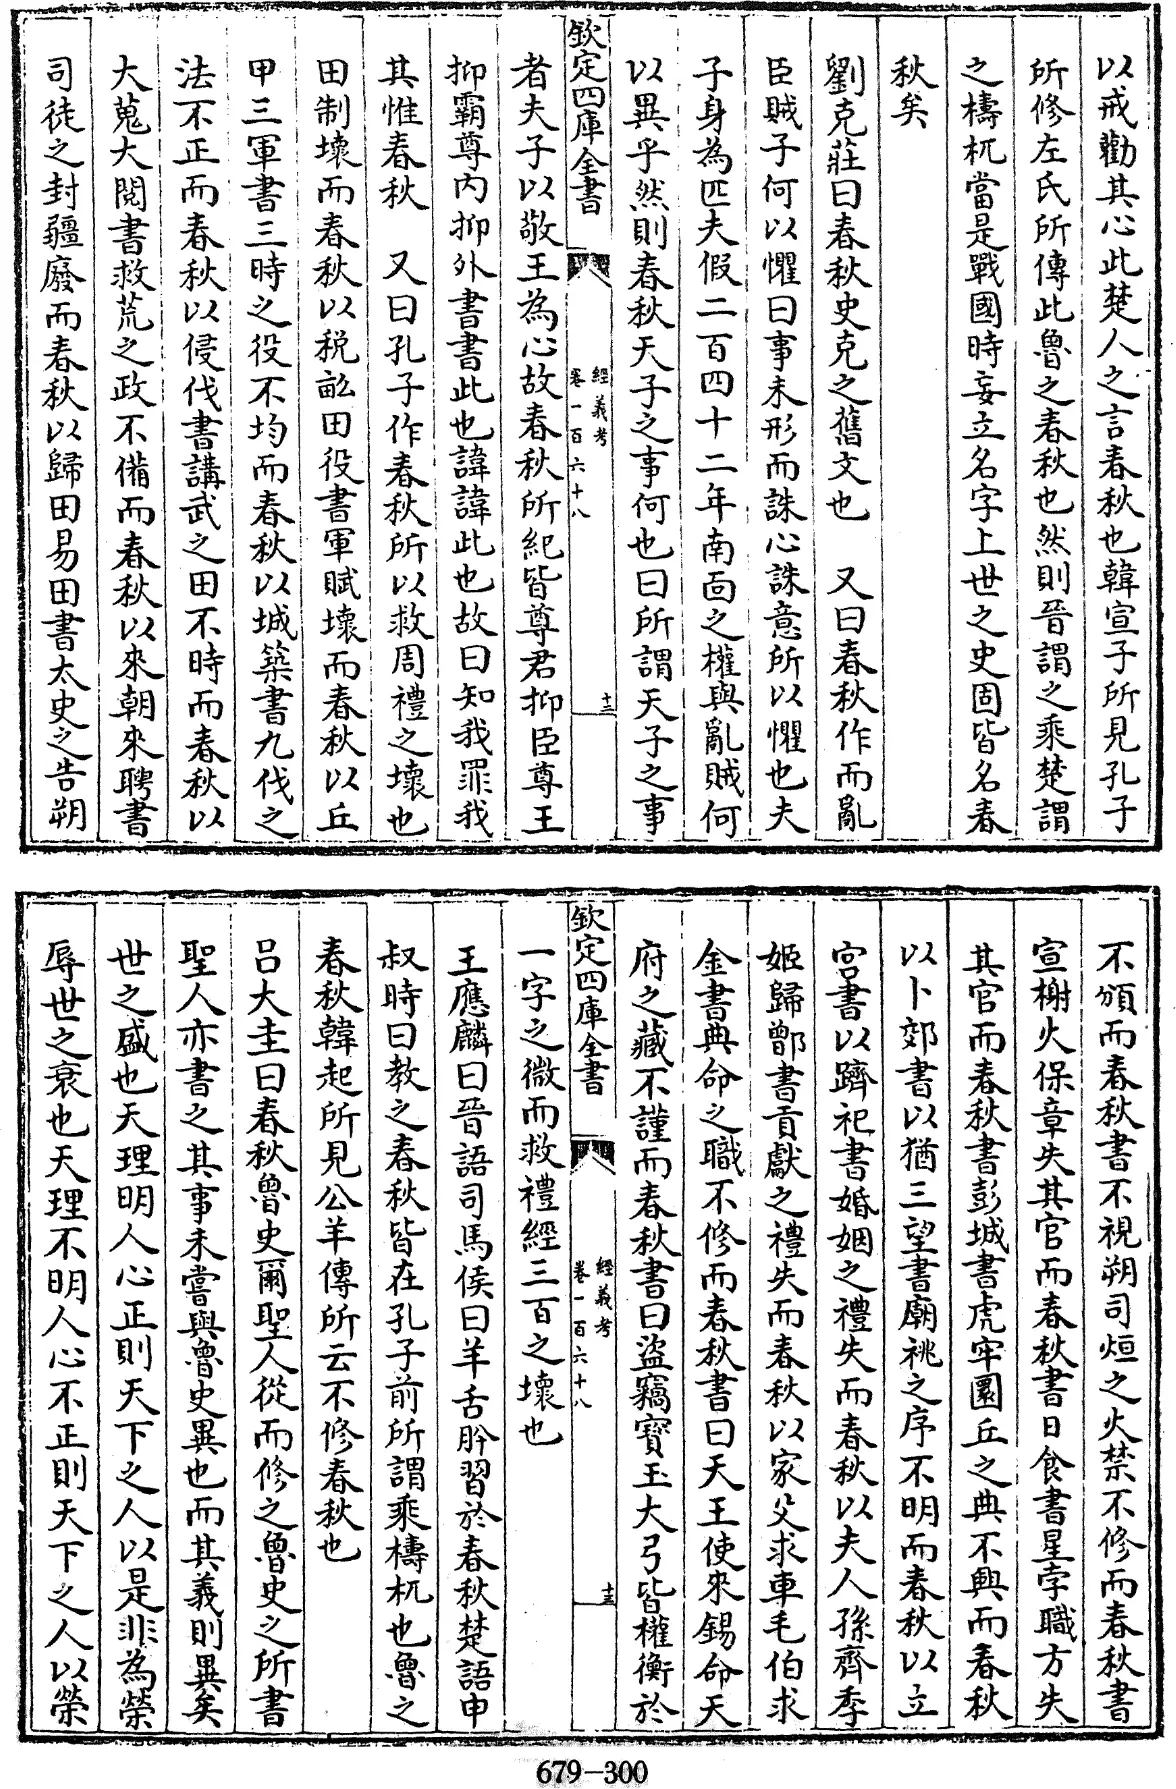 以戒勸其心此楚人之言春秋也韓宣子所見孔子
所修左氏所傳此魯之春秋也然則晉謂之乘楚謂
之檮杌當是戰國時妄立名字上世之史固皆名春
秋矣
劉克莊曰春秋史克之舊文也　又曰春秋作而亂
臣賊子何以懼曰事未形而誅心誅意所以懼也夫
子身為匹夫假二百四十二年南面之權與亂賊何
以異乎然則春秋天子之事何也曰所謂天子之事
欽定四庫全書
經義考
卷一百六十八
十三
者夫子以敬王為心故春秋所紀皆尊君抑臣尊王
抑霸尊内抑外書書此也諱諱此也故曰知我罪我
其惟春秋　又曰孔子作春秋所以救周禮之壞也
田制壞而春秋以稅畝田役書軍賦壞而春秋以丘
甲三軍書三時之役不均而春秋以城築書九伐之
法不正而春秋以侵伐書講武之田不時而春秋以
大蒐大閱書救荒之政不備而春秋以來朝來聘書
司徒之封疆廢而春秋以歸田易田書太史之告朔
不頒而春秋書不視朔司烜之火禁不修而春秋書
宣榭火保章失其官而春秋書日食書星孛職方失
其官而春秋書彭城書虎牢圜丘之典不興而春秋
以卜郊書以猶三望書廟祧之序不明而春秋以立
宮書以躋祀書婚姻之禮失而春秋以夫人孫齊季
姬歸鄫書貢獻之禮失而春秋以家父求車毛伯求
金書典命之職不修而春秋書曰天王使來錫命天
府之藏不謹而春秋書曰盜竊寳玉大弓皆權衡於
欽定四庫全書
經義考
卷一百六十八
十三
一字之微而救禮經三百之壞也
王應麟曰晉語司馬侯曰羊舌肸習於春秋楚語申
叔時曰教之春秋皆在孔子前所謂乘檮杌也魯之
春秋韓起所見公羊傳所云不修春秋也
吕大圭曰春秋魯史爾聖人從而修之魯史之所書
聖人亦書之其事未嘗與魯史異也而其義則異矣
世之盛也天理明人心正則天下之人以是非為榮
辱世之衰也天理不明人心不正則天下之人以榮
679-300